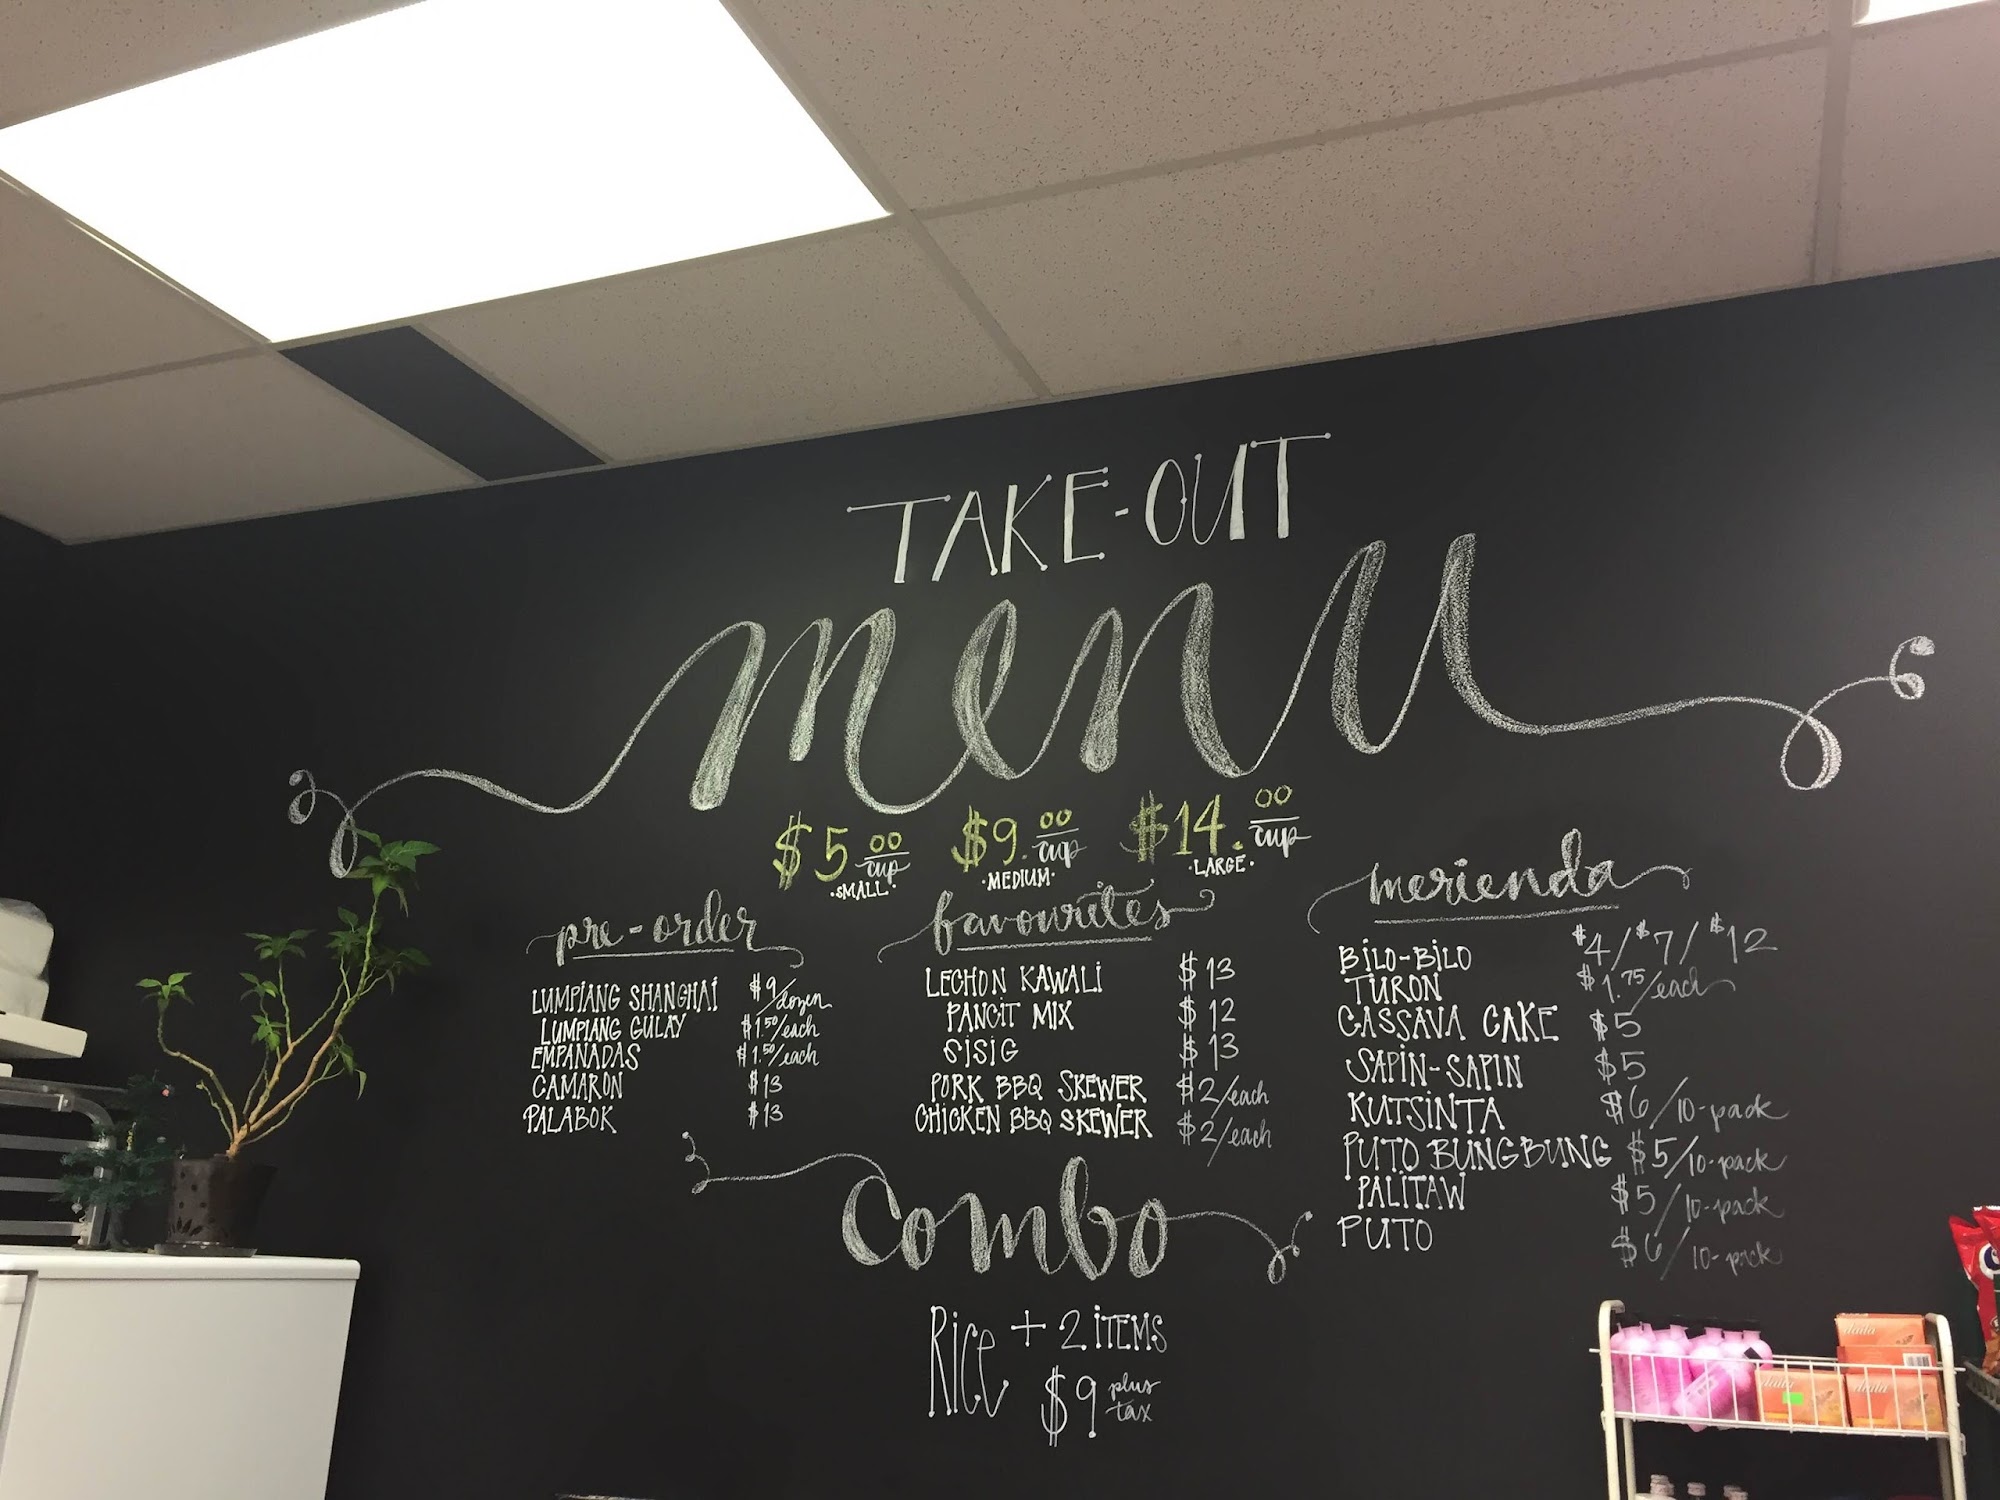 TAKE-OUT
menu
$5.00/cup $9.00/cup $14.00/cup
·SMALL· ·MEDIUM· ·LARGE·
pre-order
LUMPIANG SHANGHAI $9/dozen
LUMPIANG GULAY $1.50/each
EMPANADAS $1.50/each
CAMARON $13
PALABOK $13
favourites
LECHON KAWALI $13
PANCIT MIX $12
SISIG $13
PORK BBQ SKEWER $2/each
CHICKEN BBQ SKEWER $2/each
merienda
BILO-BILO $4/$7/$12
TURON $1.75/each
CASSAVA CAKE $5
SAPIN-SAPIN $5
KUTSINTA $6/10-pack
PUTO BUNGBUNG $5/10-pack
PALITAW $5/10-pack
PUTO $6/10-pack
combo
Rice + 2 ITEMS
$9 plus tax